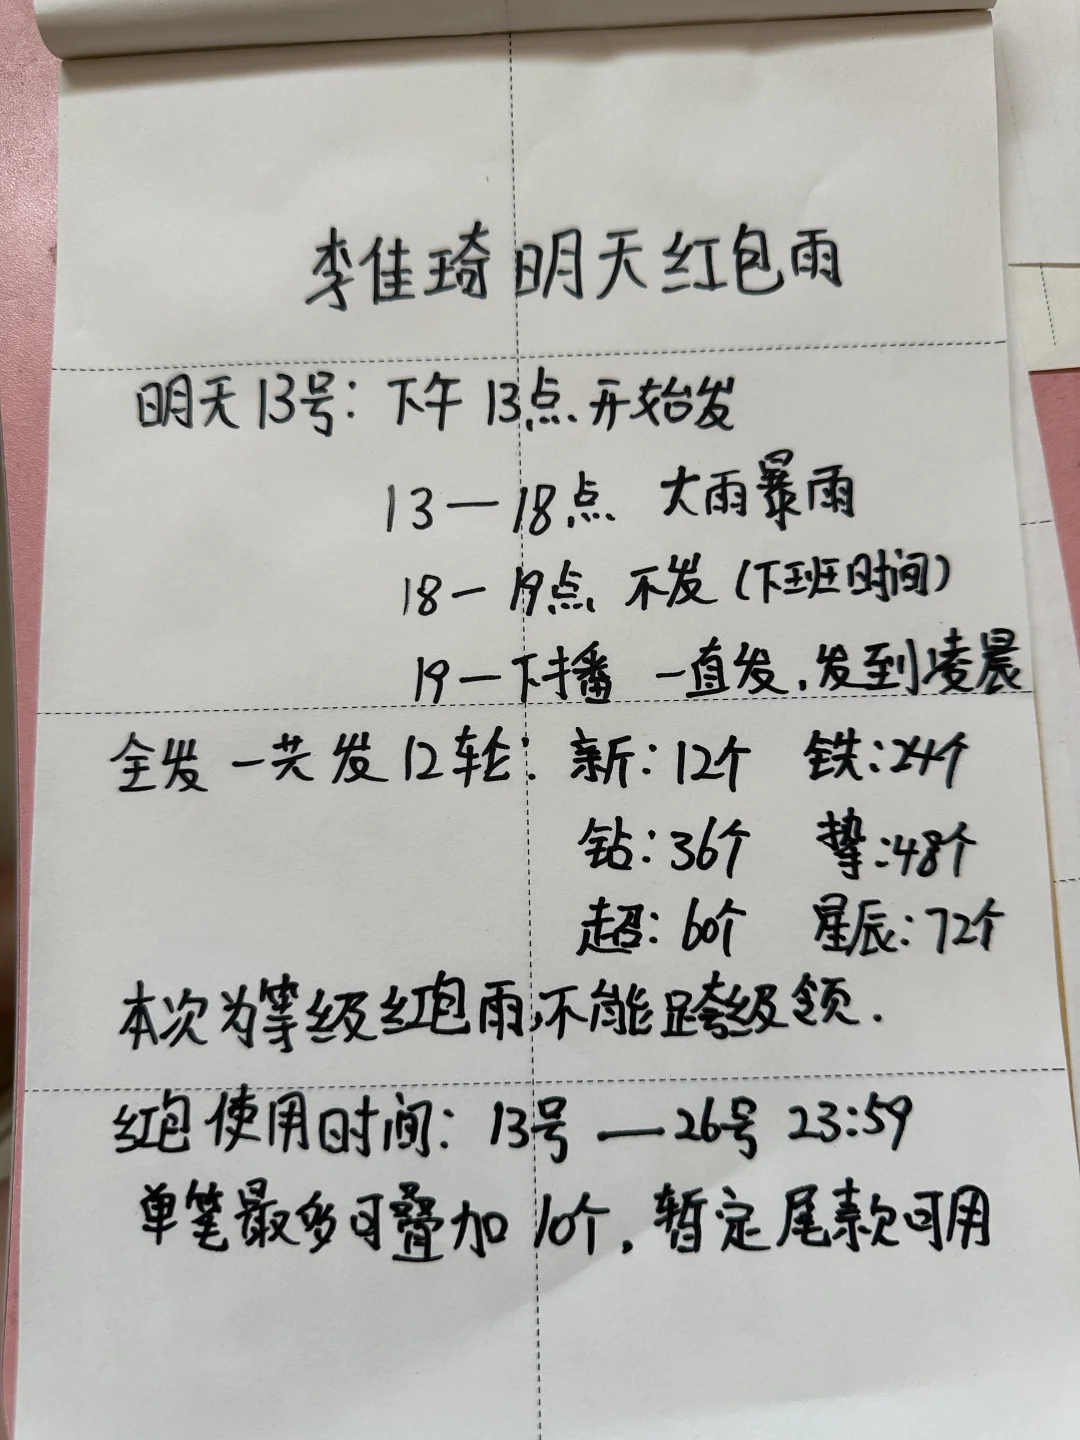 李佳琦明天红包雨
明天13号：下午13点开始发
13—18点 大雨暴雨
18—19点 不发（下班时间）
19—下播 一直发，发到凌晨
全发一共发12轮：新：12个 铁：24个
钻：36个 挚：48个
超：60个 星辰：72个
本次为等级红包雨，不能跨级领.
红包使用时间：13号—26号 23:59
单笔最多可叠加10个，暂定尾款可用